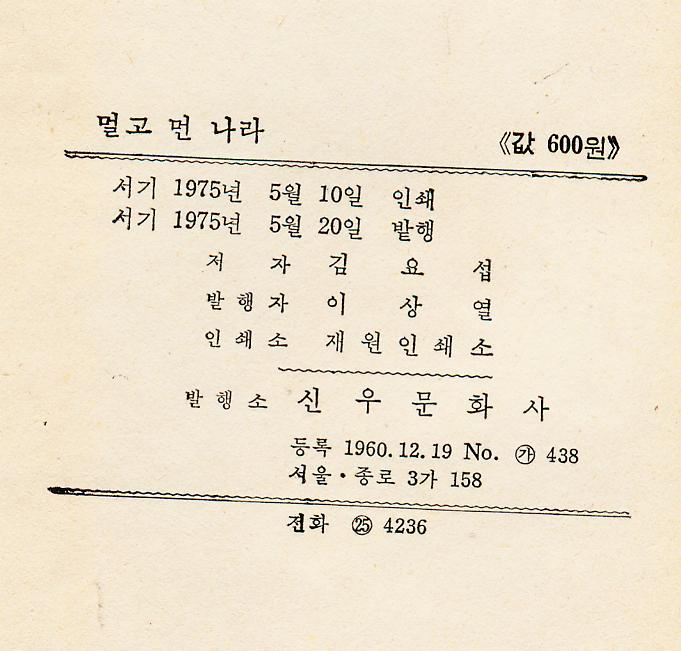 멀고 먼 나라
《값 600원》
서기 1975년 5월 10일 인쇄
서기 1975년 5월 20일 발행
저 자 김 요 섭
발 행 자 이 상 열
인 쇄 소 재 원 인 쇄 소
발 행 소 신 우 문 화 사
등록 1960.12.19 No. ㉮ 438
서울·종로 3가 158
전화 ㉕ 4236